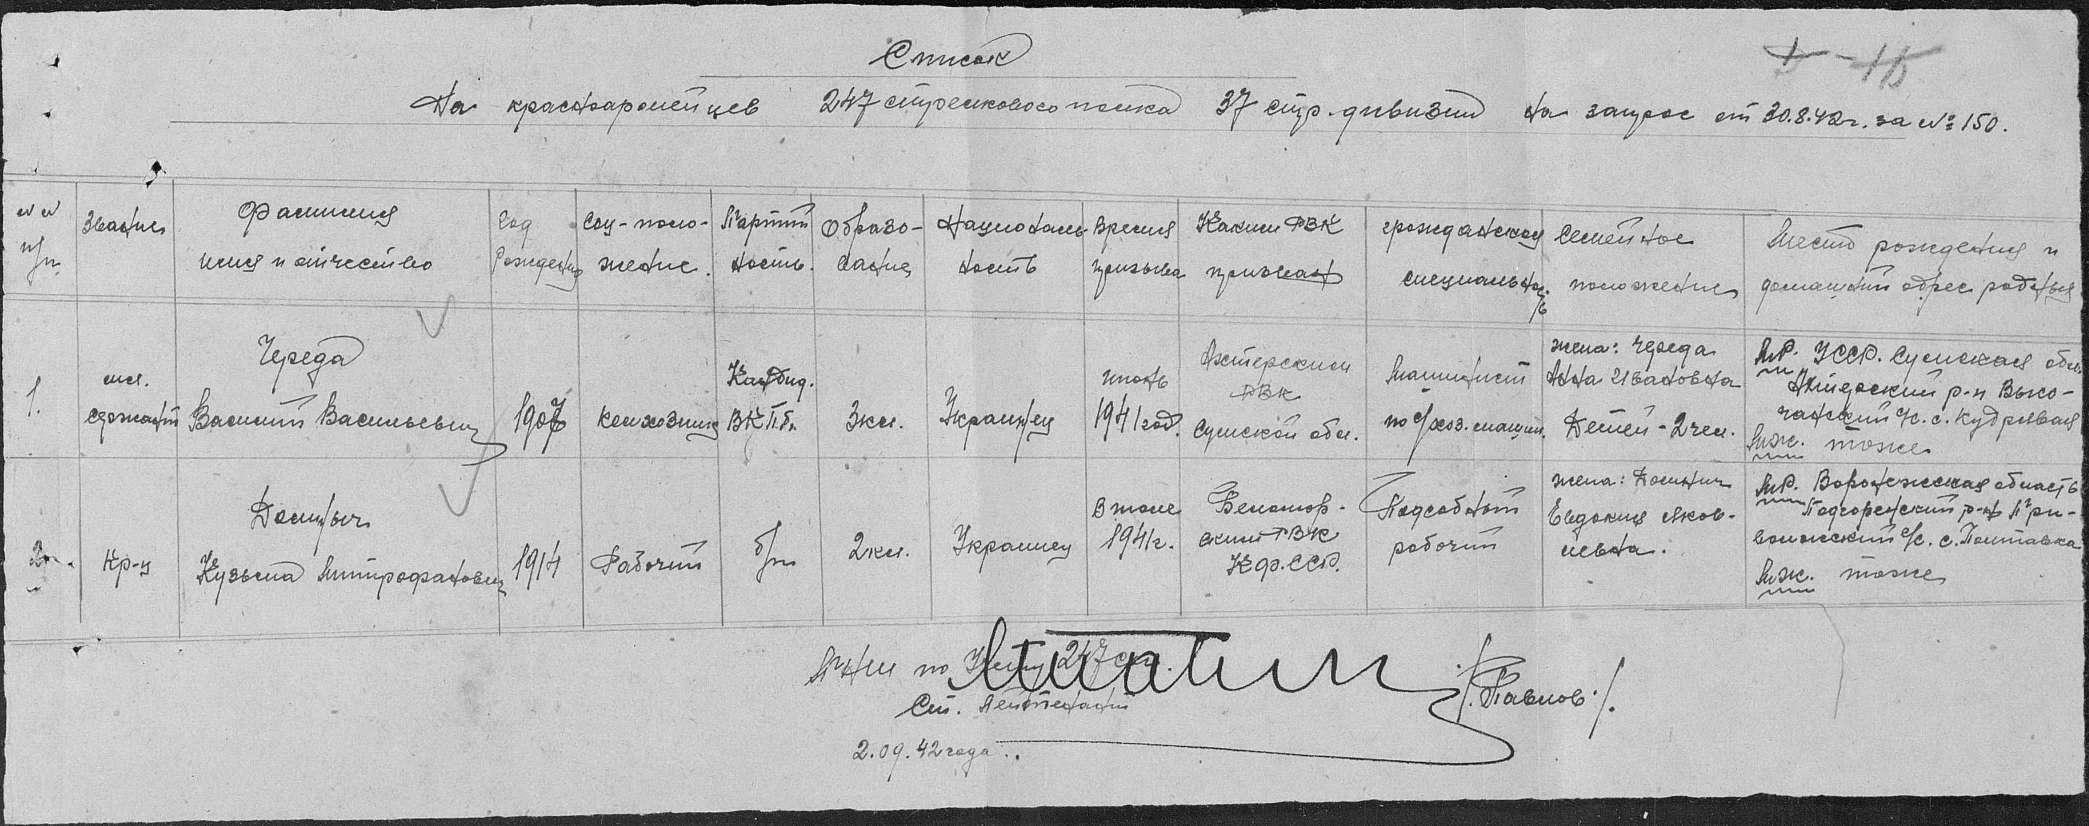 Список
На красноармейцев 247 стрелкового полка 37 стр. дивизии на запрос от 30.8.42г. за №150.
№№ п/п
Звание
Фамилия
имя и отчество
Год
Рождения
Соц-поло-
жение.
Партий
ность.
Образо-
вание
Националь
ность
Время
призыва
Каким РВК
призван
гражданская
специальность
Семейное
положение
Место рождения и
домашний адрес родных
1.
мл.
сержант
Череда
Василий Васильевич
1907
колхозник
Кандид.
ВКПб.
3кл.
Украинец
июнь
1941год.
Ахтерским
РВК
Сумской обл.
Машинист
по с/хоз. машин.
жена: Череда
Анна Ивановна
Детей-2чел.
М.Р. УССР. Сумская обл.
Ахтерский р-н Высо-
чанский с/с. с. Кудрявая
М.ж. тоже
2.
Кр-ц
Долныч
Кузьма Митрофанович
1914
Рабочий
б/п
2кл.
Украинец
В июле
1941г.
Беломор-
ский РВК
КФ.ССР.
Подсобный
рабочий
жена:
Евдокия Яков-
левна.
М.Р. Воронежская область
Подгоренский р-н При-
с/с. с. Полтавка
М.ж. тоже
ПНШ по 247 сп.
Ст. Лейтенант
/.Павлов./
2.09.42года.